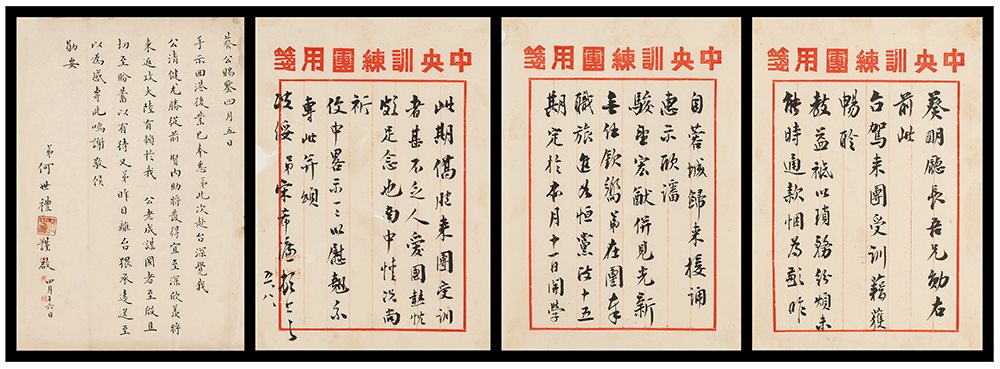 中央訓練團用箋
葵明廳長吾兄勛右
前此
台駕來團受訓藉獲
暢聆
教益祗以瑣務紛煩未
能時通款悃為歉昨
中央訓練團用箋
自蓉城歸來接誦
惠示欣諗
駿望宏猷併見光新
無任欽嚮弟在團奉
職旅進如恒黨政十五
期定於本月十一日開學
中央訓練團用箋
此期僑胞來團受訓
者甚不乏人愛國熱忱
頗足念也南中情況尚
祈
便中畧示一二以慰翹企
專此并頌
政綏 弟宋希濂頓上
五八
葵公賜鑒四月五日
手示回港後業已奉悉弟此次赴台深覺我
公清健尤勝從前 賢內助將護得宜至深欣羨將
來返政大陸有賴於我 公老成謀國者至殷且
切至盼蓄以有待又弟昨日離台猥承遠送至
以為感專此鳴謝敬候
勛安
弟何世禮 謹啟 四月十六日